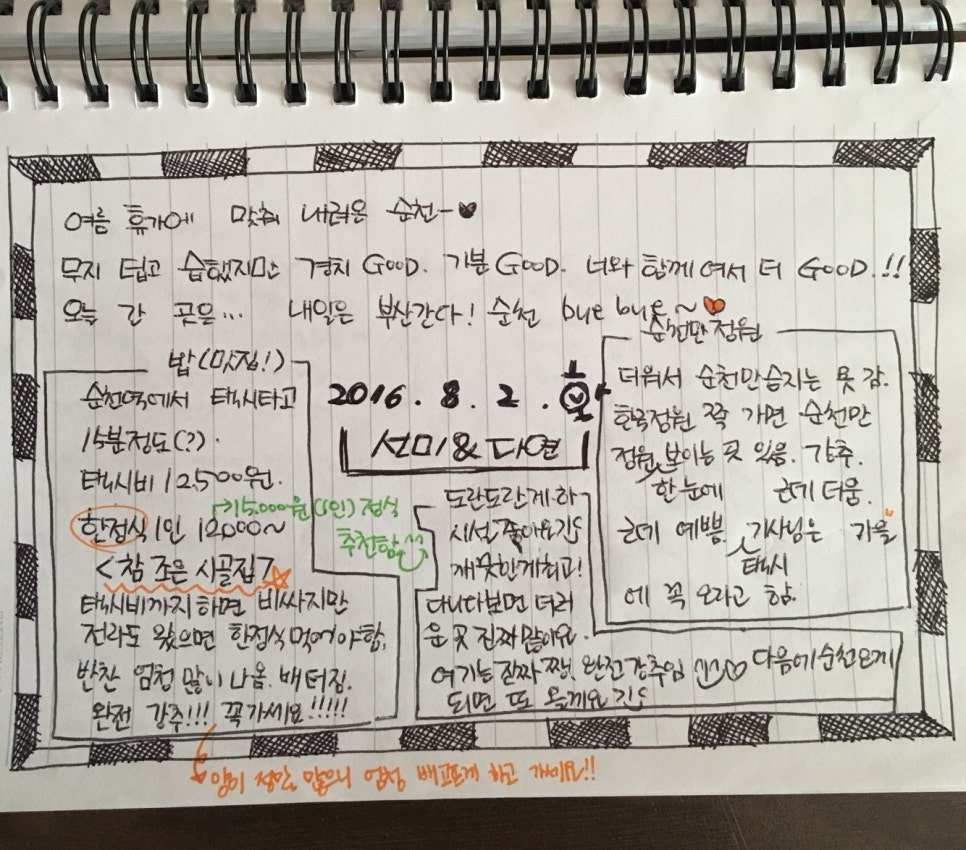 여름 휴가에 맞춰 내려온 순천~♥
무지 덥고 습했지만 경치 GOOD. 기분 GOOD. 너와 함께여서 더 GOOD.!!
오늘 간 곳은... 내일은 부산간다! 순천 bye bye~♥
밥(맛집!)
순천역에서 택시타고
15분정도(?).
택시비 12,500원.
한정식 1인 12,000~
→15,000원(1인)정식
추천함^^
<참 조은 시골집>☆
택시비까지하면 비싸지만
전라도 왔으면 한정식먹어야함.
반찬 엄청 많이 나옴. 배터짐.
완전 강추!!! 꼭가세요!!!!!
양이 정말 많으니 엄청 배고프게 하고 가세요!!
2016. 8. 2. 화
선미&다연
순천만정원
더워서 순천만습지는 못 감.
한국정원 쪽 가면 순천만
정원 한눈에 보이는 곳 있음. 강추.
근데 더움.
근데 예쁨. 택시 기사님은 가을
에 꼭 오라고 함.
도란도란게하
시설 좋아요
깨끗한게최고!
다니다보면 더러
운 곳 진짜 많아요.
여기는 진짜 짱. 완전강추임 ^^♡ 다음에순천오게
되면 또 올께요